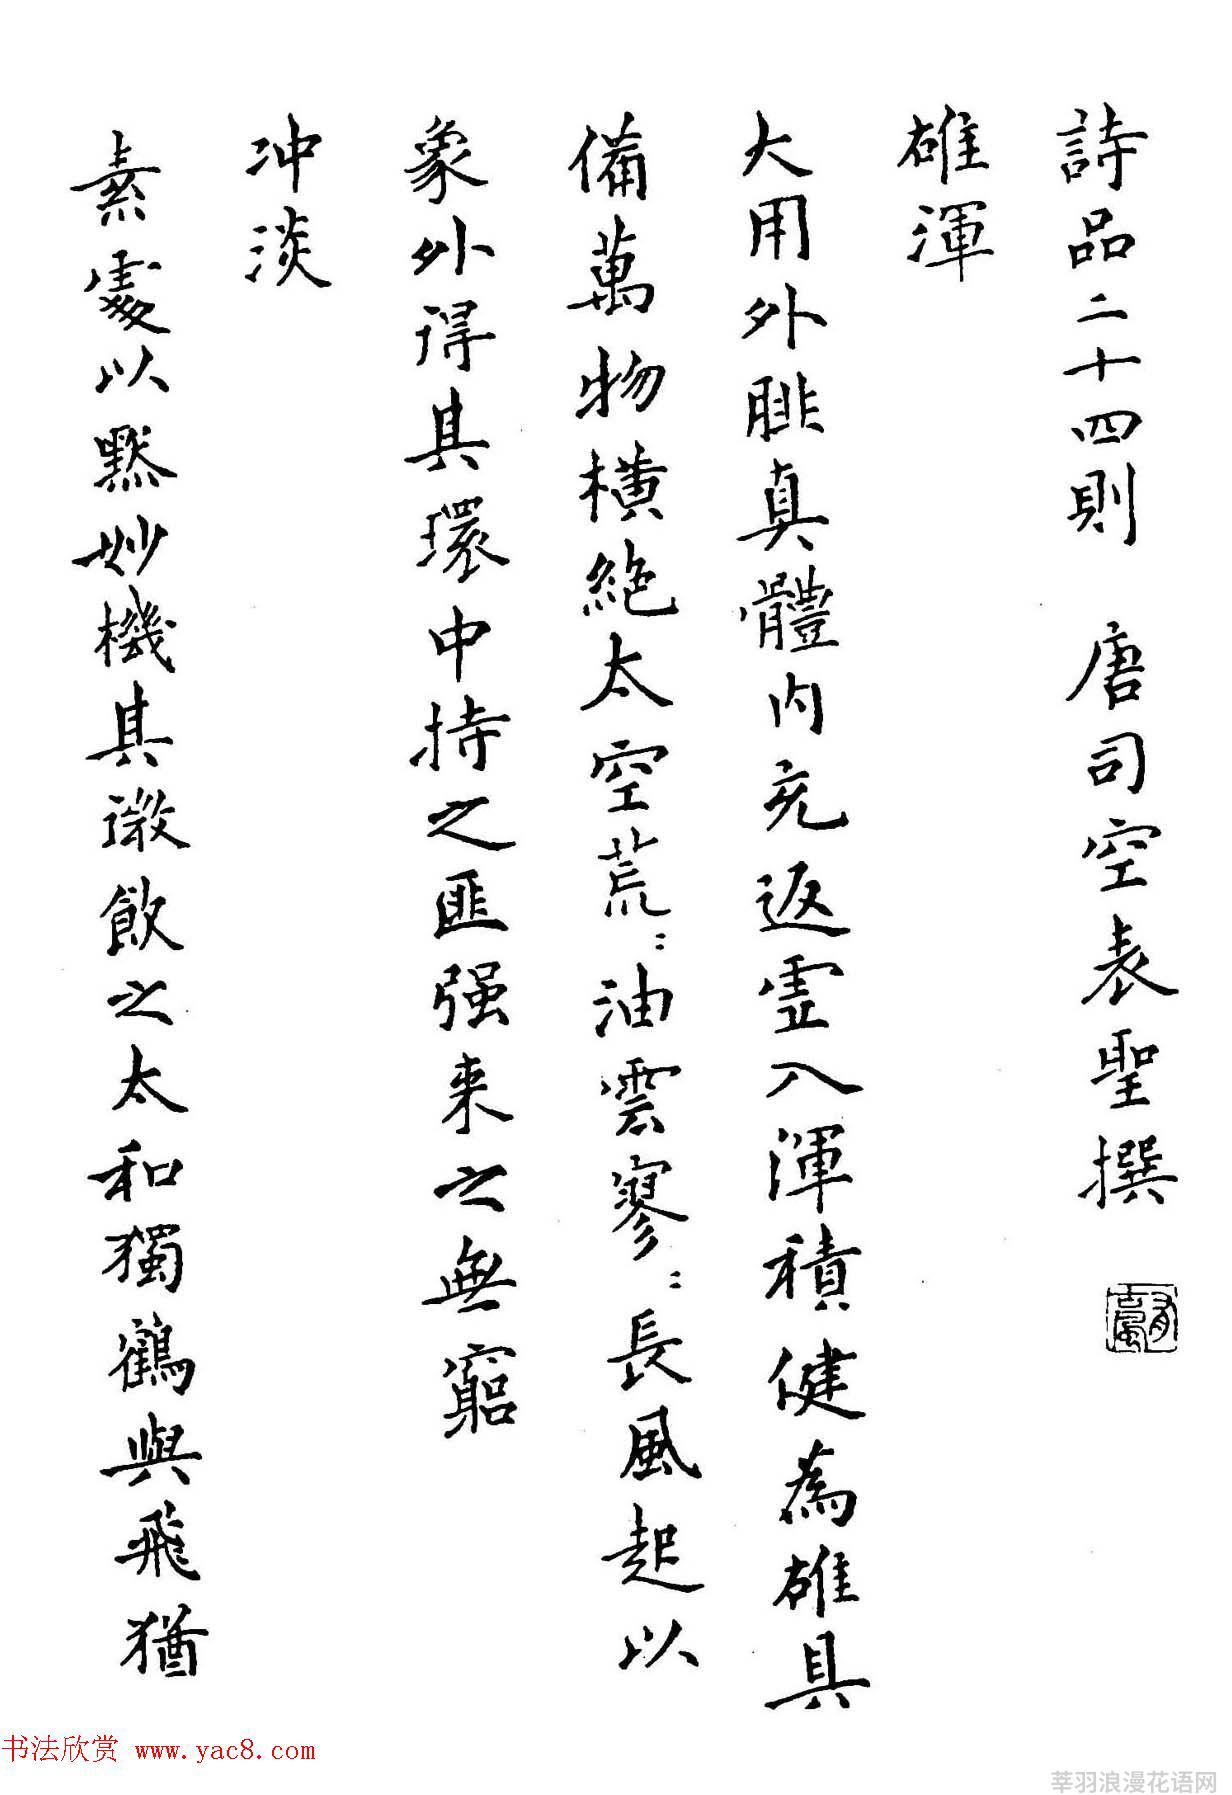 詩品二十四則 唐司空表聖撰
雄渾
大用外腓真體内充返虛入渾積健為雄具
備萬物橫絶太空荒〻油雲寥〻長風起以
象外得其環中持之匪强来之無窮
冲淡
素處以默妙機其微飲之太和獨鶴與飛猶
书法欣赏 www.yac8.com
莘羽浪漫花语网